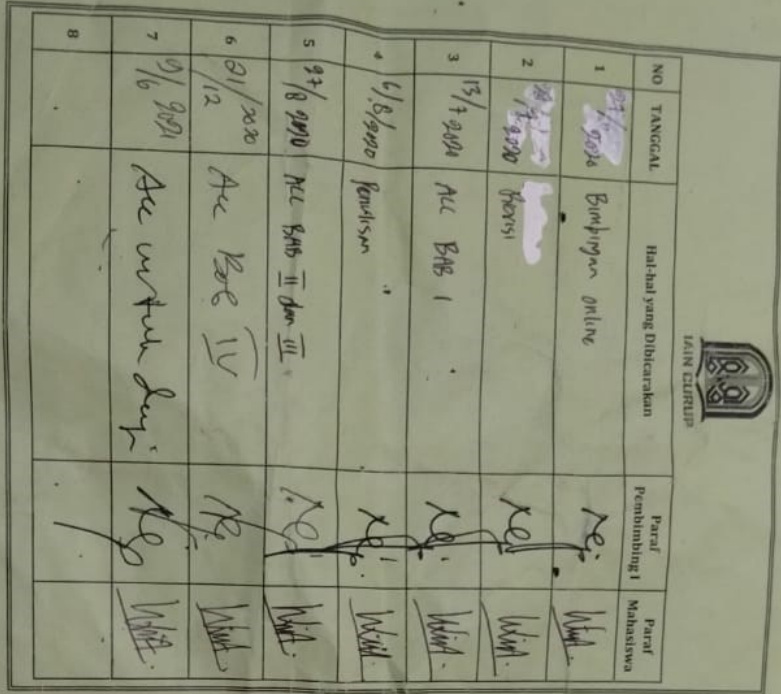 IAIN CURUP
NO TANGGAL Hal-hal yang Dibicarakan Paraf Pembimbing I Paraf Mahasiswa
1 2020 Bimbingan online
2 2020 Revisi
3 13/7 2020 ACC BAB 1
4 6/8/2020 Penulisan
5 27/8 2020 ACC BAB II dan III
6 21/12 2020 Acc Bab IV
7 9/6 2021 Acc untuk
8